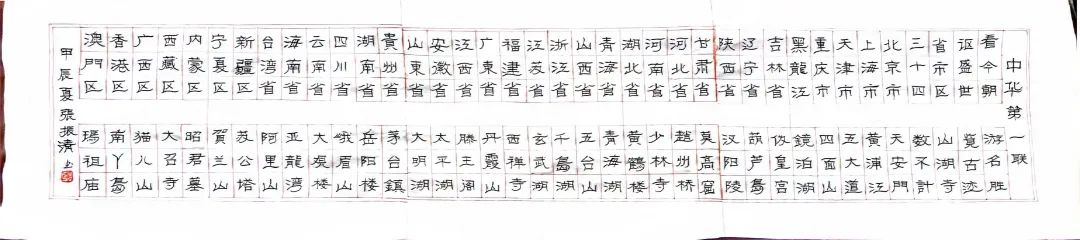 中华第一联
看今朝
讴盛世
省市区
三十四
北京市
上海市
天津市
重庆市
黑龍江
吉林省
辽宁省
陕西省
甘肃省
河北省
河南省
湖北省
青海省
山西省
浙江省
江苏省
福建省
广東省
江西省
安徽省
山東省
貴州省
湖南省
四川省
云南省
海南省
台湾省
新疆区
宁夏区
内蒙区
西藏区
广西区
香港区
澳門区
游名胜
覓古迹
山湖寺
数不計
天安門
黄浦江
五大道
四面山
鏡泊湖
伪皇宫
葫芦島
汉阳陵
莫高窟
趙州桥
少林寺
黄鶴楼
青海湖
五台山
千島湖
玄武湖
西禅寺
丹霞山
滕王阁
太平湖
大明湖
茅台鎮
岳阳楼
峨眉山
大觀楼
亚龍湾
阿里山
苏公塔
賀兰山
昭君墓
大召寺
猫儿山
南丫島
瑪祖庙
甲辰夏張振清书